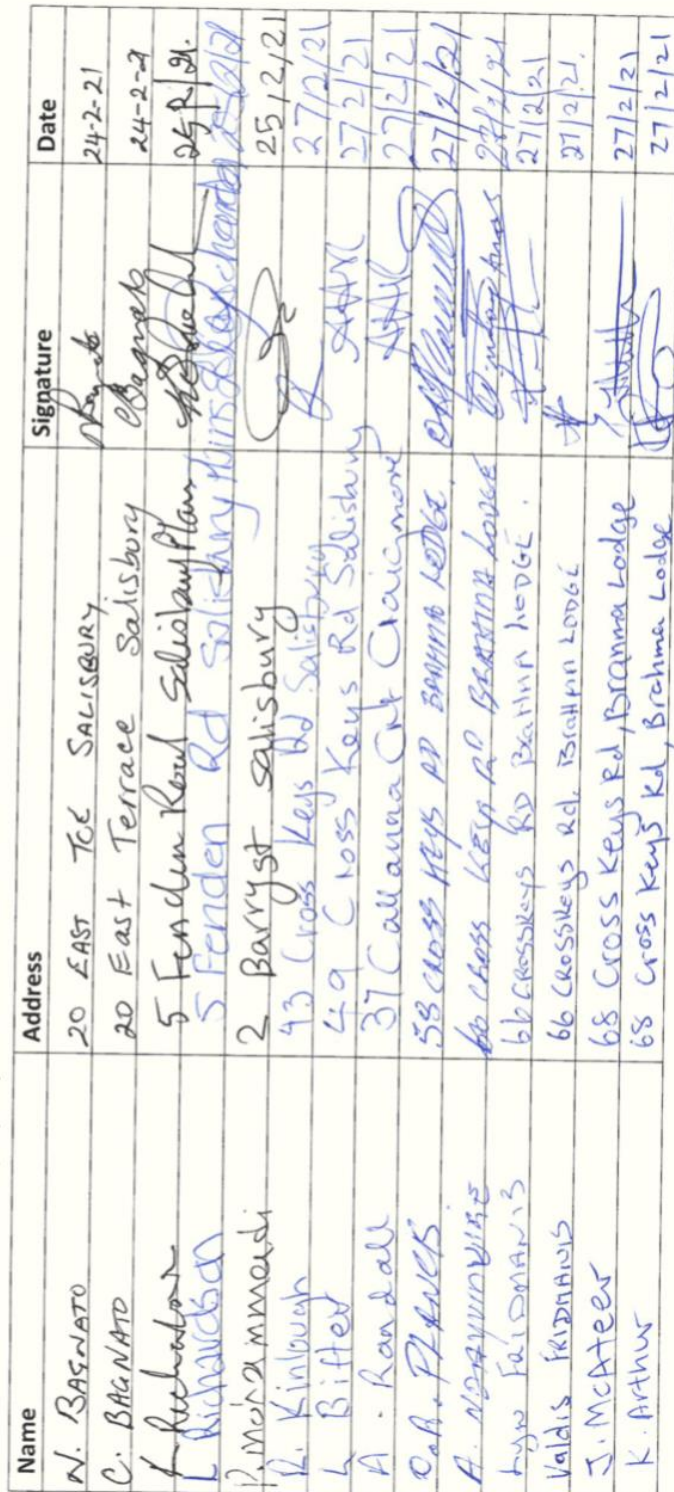 Name Address Signature Date
N. BAGNATO 20 EAST TCE SALISBURY 24-2-21
C. BAGNATO 20 East Terrace Salisbury CBagnato 24-2-21
5 Fenden Road Salisbury Plain
L Richardson 5 Fenden Rd Salisbury Plains
R. Mohammadi 2 Barryst Salisbury 25/2/21
R. Kinlough 43 Cross Keys Rd Salisbury 27/2/21
L Bitter 49 Cross Keys Rd Salisbury 27/2/21
A. Randall 37 Callanna Craigmore 27/2/21
58 CROSS KEYS RD BRAHMA LODGE 27/2/21
66 CROSS KEYS RD BRAHMA LODGE
Lyn FRIDMANIS 66 CROSSKeys RD BRAHMA LODGE. 27/2/21
Valdis FRIDMANIS 66 CROSSKeys Rd. BRAHMA LODGE 27/2/21.
J. McAteer 68 Cross Keys Rd, Brahma Lodge 27/2/21
K. Arthur 68 Cross Keys Rd, Brahma Lodge 27/2/21